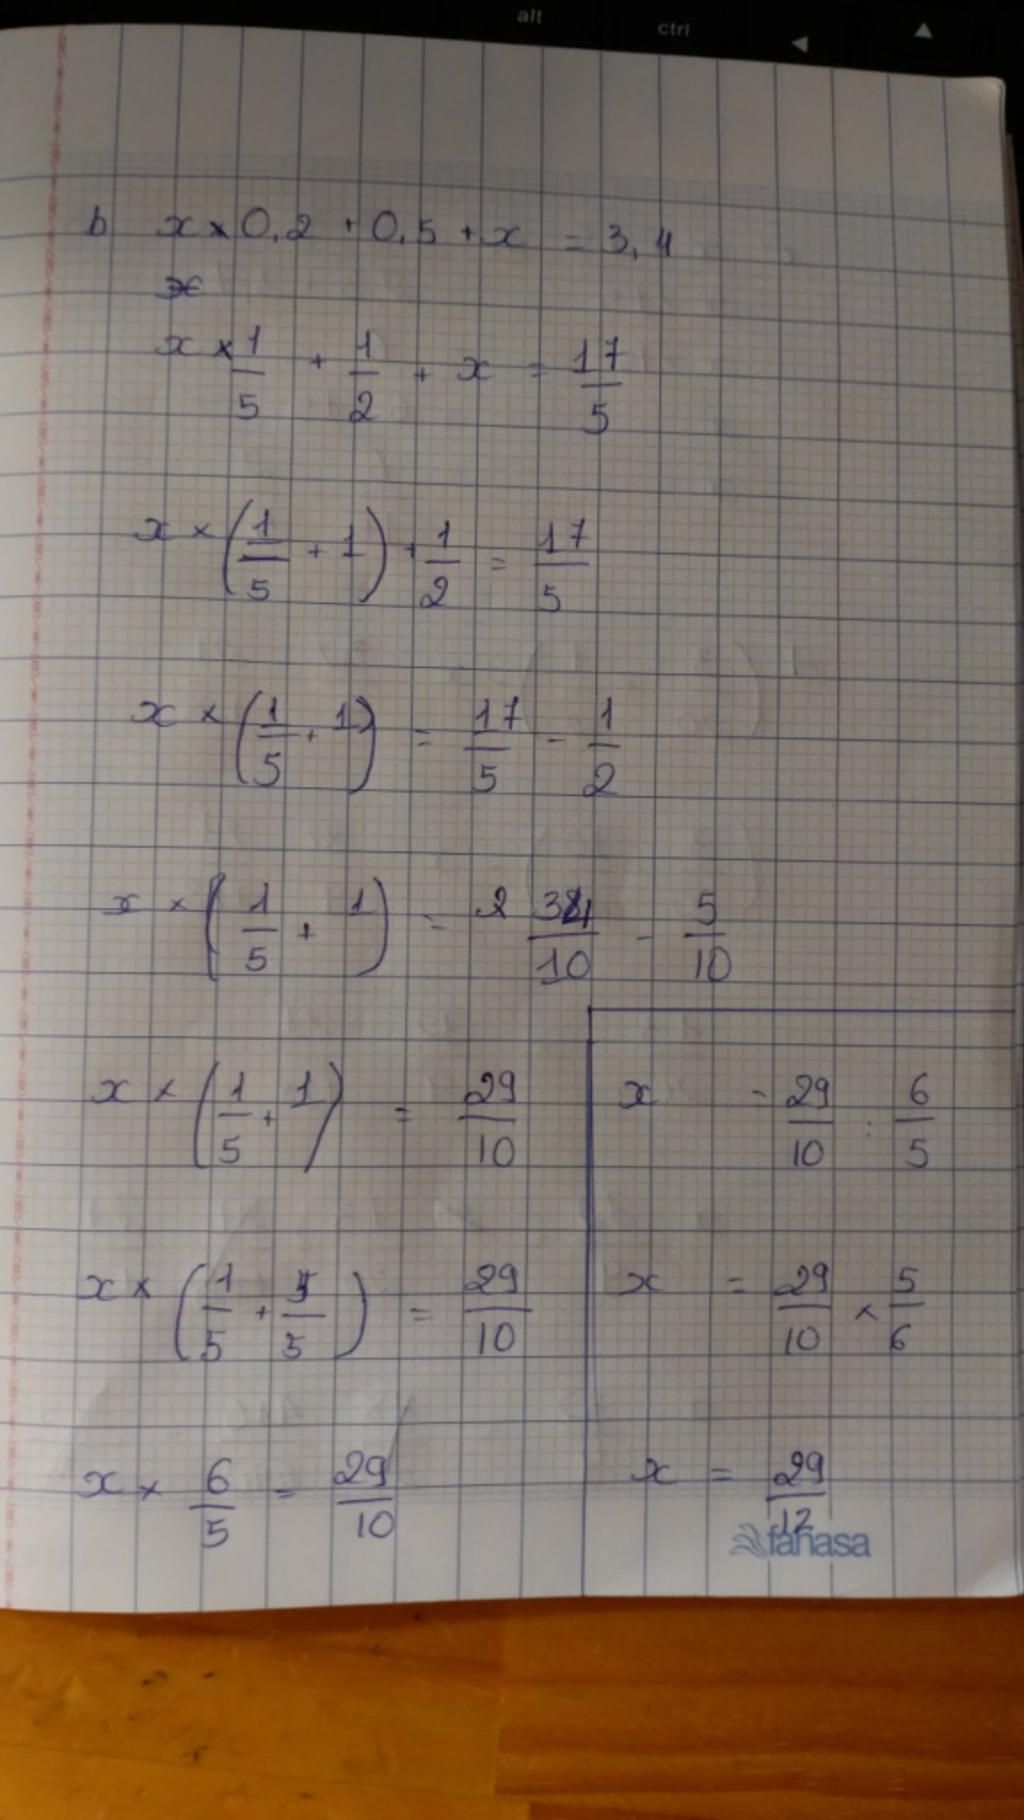 alt ctrl ◀ ▲
b x × 0,2 + 0,5 + x = 3,4
x
x × 1/5 + 1/2 + x = 17/5
x × (1/5 + 1) + 1/2 = 17/5
x × (1/5 + 1) = 17/5 - 1/2
x × (1/5 + 1) = 2 34/10 - 5/10
x × (1/5 + 1) = 29/10
x × (1/5 + 5/5) = 29/10
x × 6/5 = 29/10
x = 29/10 : 6/5
x = 29/10 × 5/6
x = 29/12
fahasa